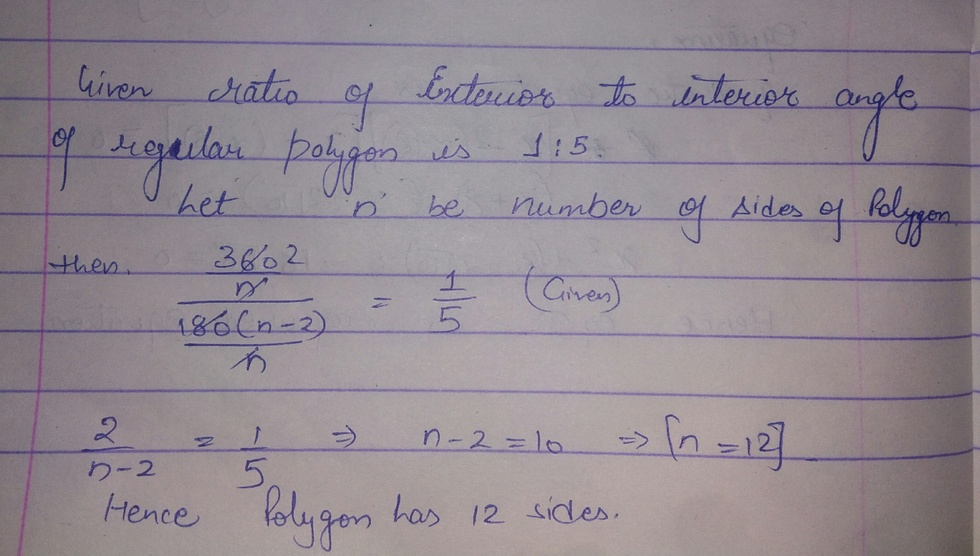 Given ratio of Exterior to interior angle
of regular polygon is 1:5.
Let n be number of sides of Polygon
then, (360 2/n)/(180(n-2)/n) = 1/5 (Given)
2/(n-2) = 1/5 ⇒ n-2=10 ⇒ [n=12]
Hence Polygon has 12 sides.